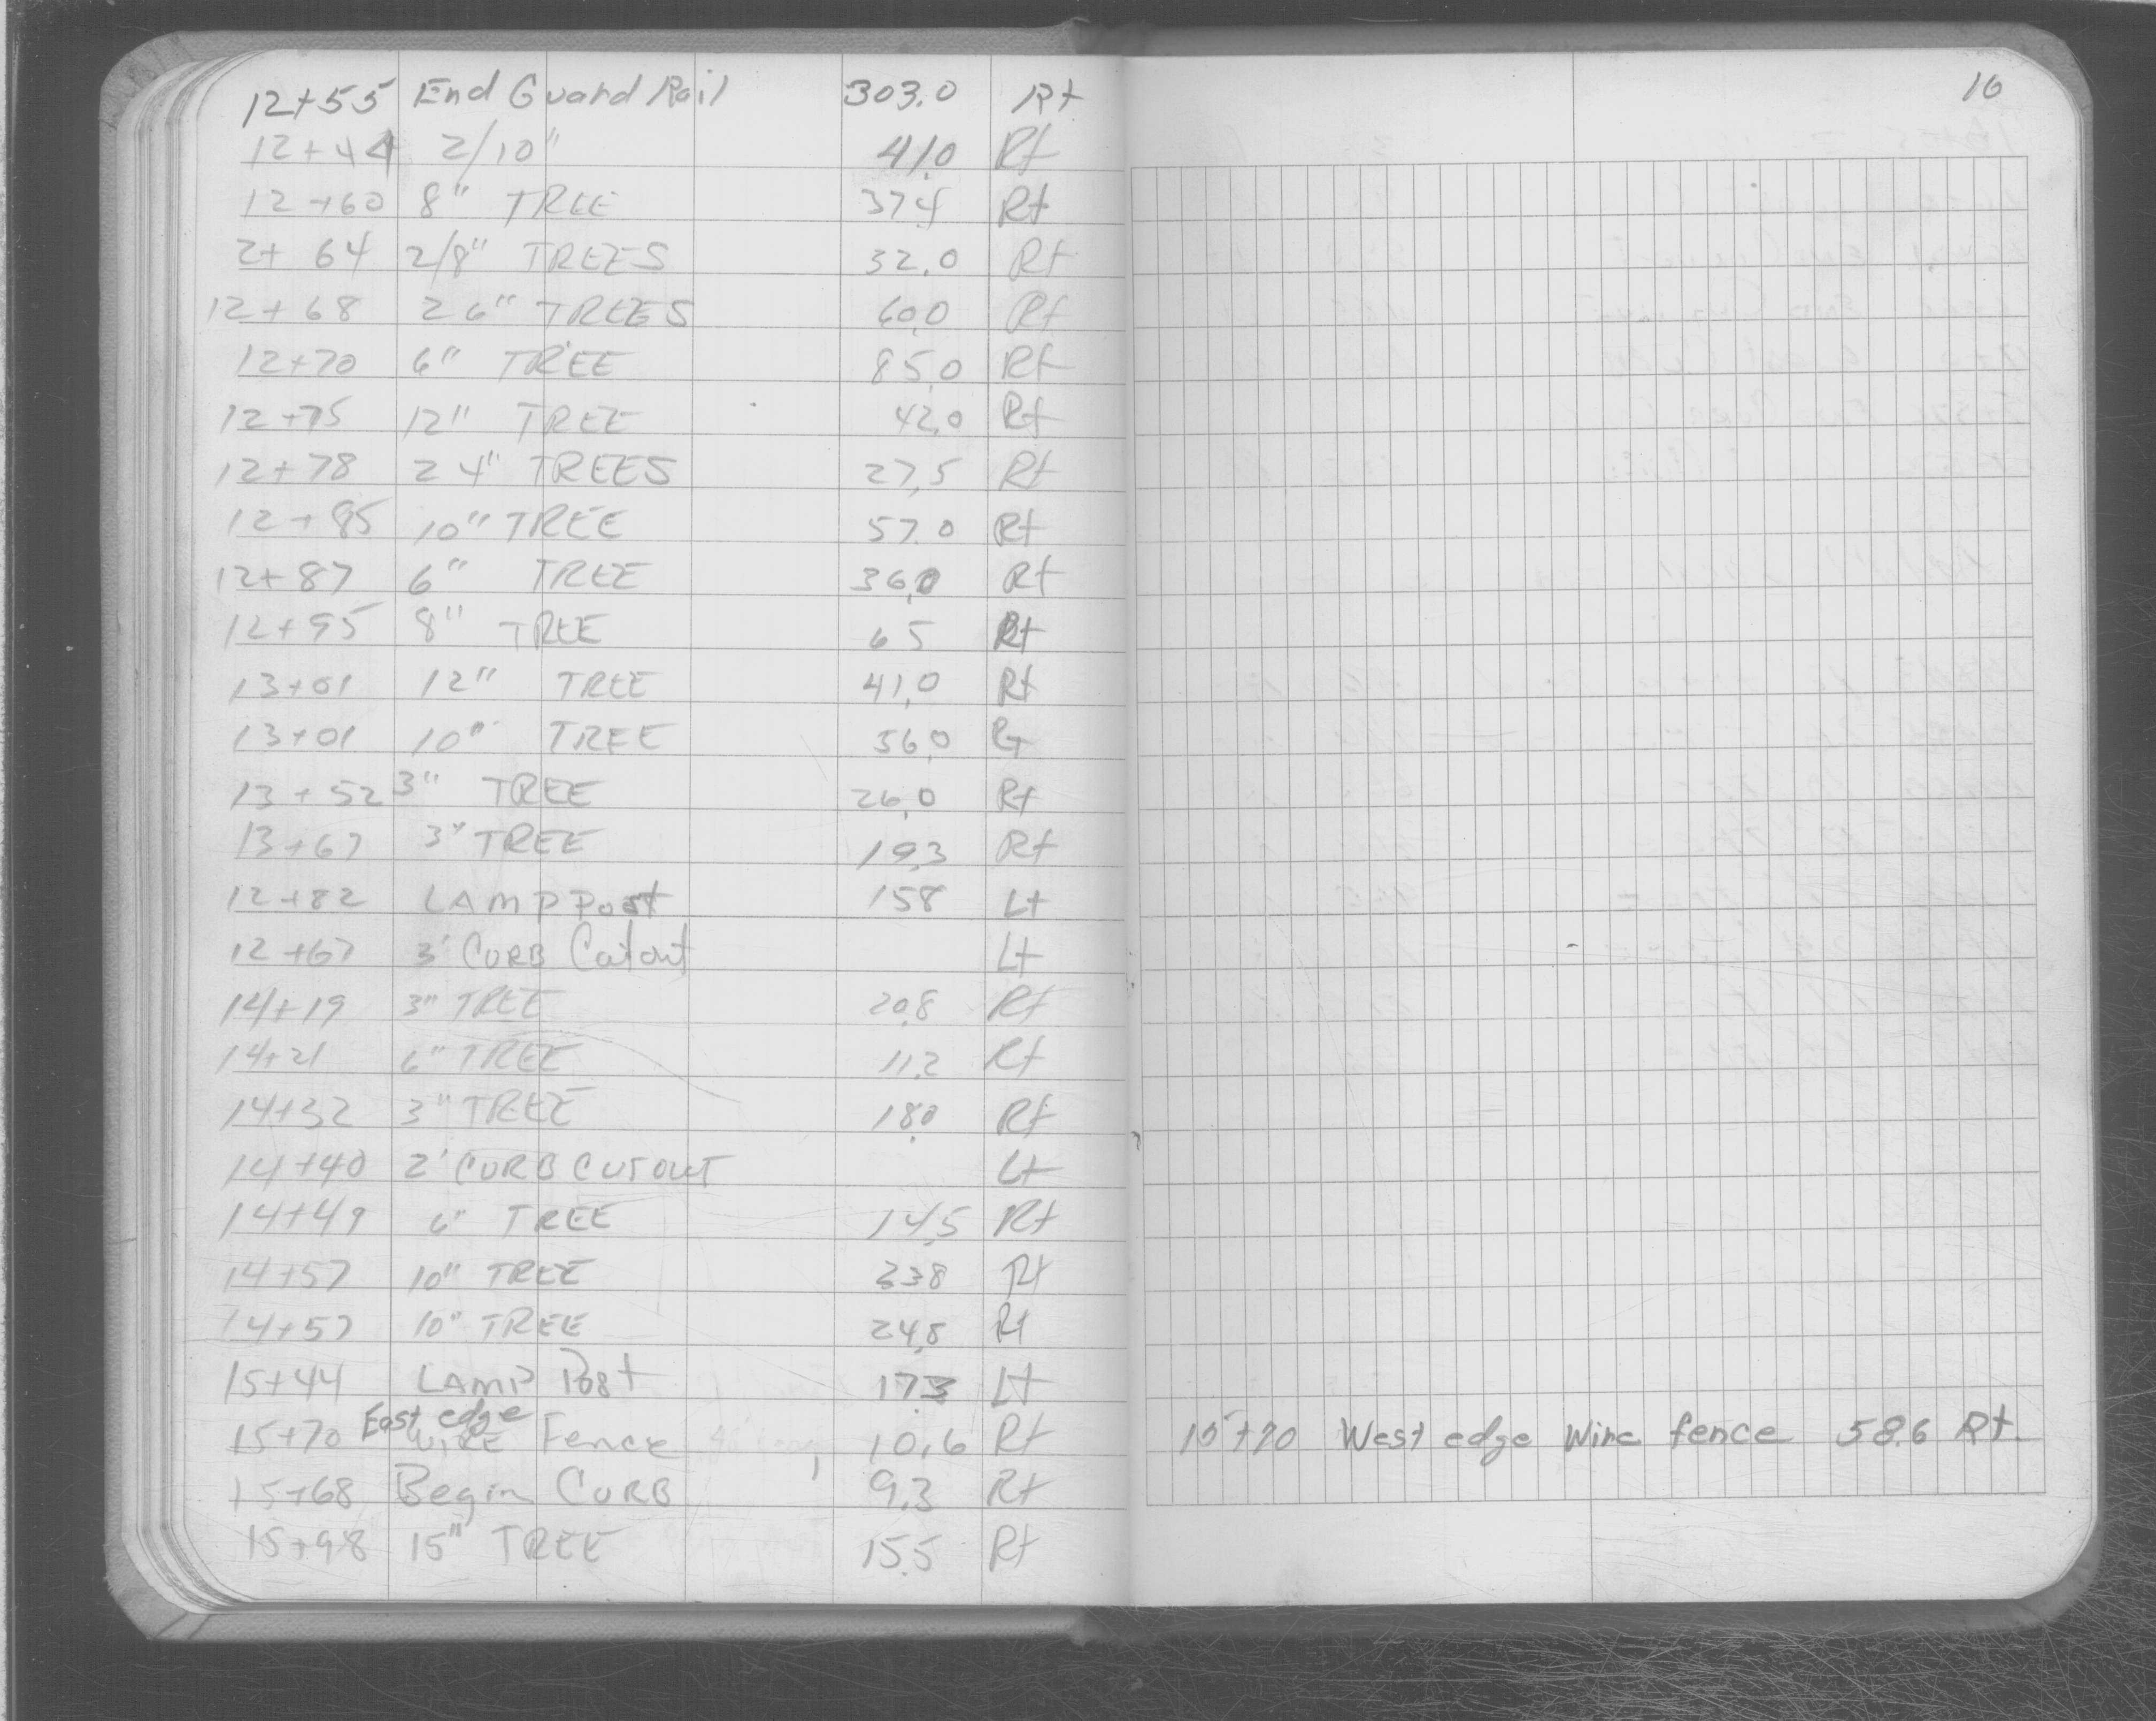 16
12+55 End Guard Rail 303.0 Rt
12+44 2/10" 41.0 Rt
12+60 8" TREE 37.4 Rt
2+64 2/8" TREES 32.0 Rt
12+68 2 6" TREES 60.0 Rt
12+70 6" TREE 85.0 Rt
12+75 12" TREE 42.0 Rt
12+78 2 4" TREES 27.5 Rt
12+85 10" TREE 57.0 Rt
12+87 6" TREE 36.0 Rt
12+95 8" TREE 65 Rt
13+01 12" TREE 41.0 Rt
13+01 10" TREE 36.0 RT
13+52 3" TREE 26.0 Rt
13+67 3" TREE 19.3 Rt
12+82 LAMP Post 158 Lt
12+67 3' CURB Cutout Lt
14+19 3" TREE 20.8 Rt
14+21 6" TREE 11.2 Rt
14+32 3" TREE 18.0 Rt
14+40 2' CURB CUTOUT Lt
14+49 6" TREE 14.5 Rt
14+57 10" TREE 23.8 Rt
14+57 10" TREE 24.8 Rt
15+44 LAMP Post 17.3 Lt
15+70 East edge WIRE Fence 10.6 Rt
15+68 Begin CURB 9.3 Rt
15+98 15" TREE 15.5 Rt
15+70 West edge Wire fence 58.6 Rt.